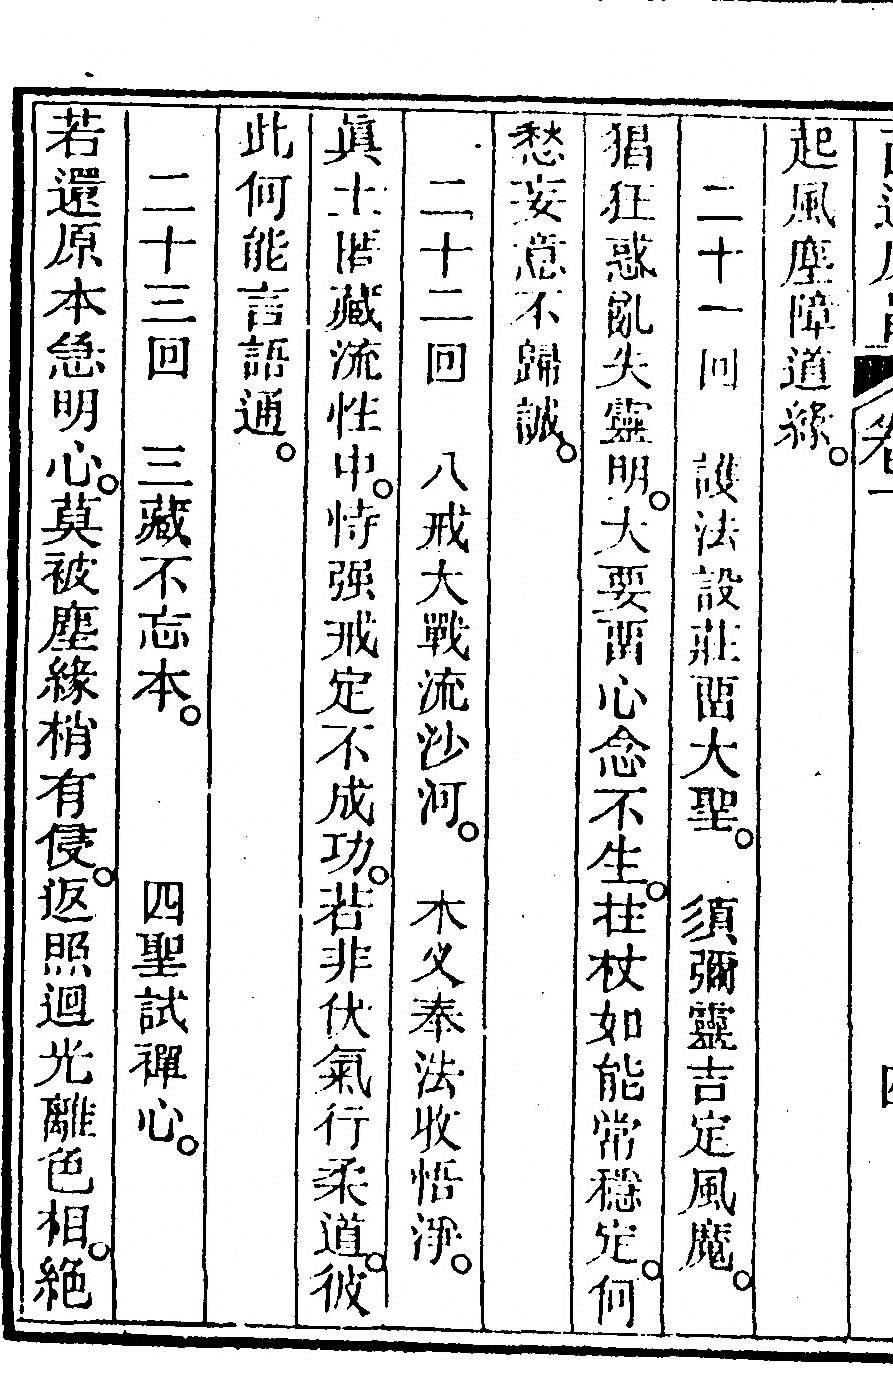 起風塵障道緣。
二十一回　護法設莊留大聖。　須彌靈吉定風魔。
猖狂惑亂失靈明。大要留心念不生。拄杖如能常穩定。何
愁妄意不歸誠。
二十二回　八戒大戰流沙河。　木叉奉法收悟淨。
眞土潛藏流性中。恃强戒定不成功。若非伏氣行柔道。彼
此何能言語通。
二十三回　三藏不忘本。　四聖試禪心。
若還原本急明心。莫被塵緣梢有侵。返照迴光離色相。絶